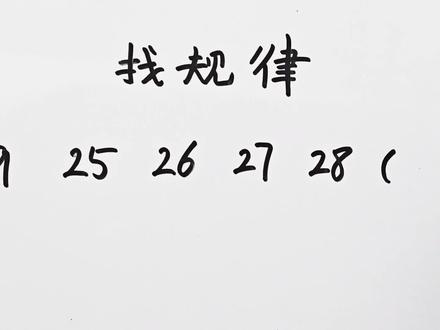 找规律
9 25 26 27 28 (